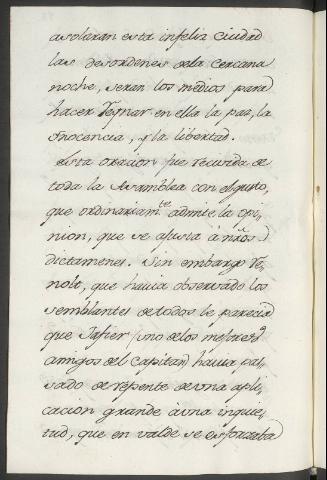 asolaran esta infeliz ciudad
las desordenes dela cercana
noche, seran los medios para
hacer Reynar en ella la paz, la
Ynocencia, y la libertad.
Esta oracion fue recivida de
toda la Asamblea con el gusto,
que ordinariamte admite la opi
nion, que se ajusta à nros
dictamenes. Sin embargo Re,
nolt, que havia observado los
semblantes de todos le parecia
que Jafier (uno delos mejores
amigos del capitan) havia pas,
sado de repente de una apli
cacion grande àuna inquie,
tud, que en valde se esforzaba